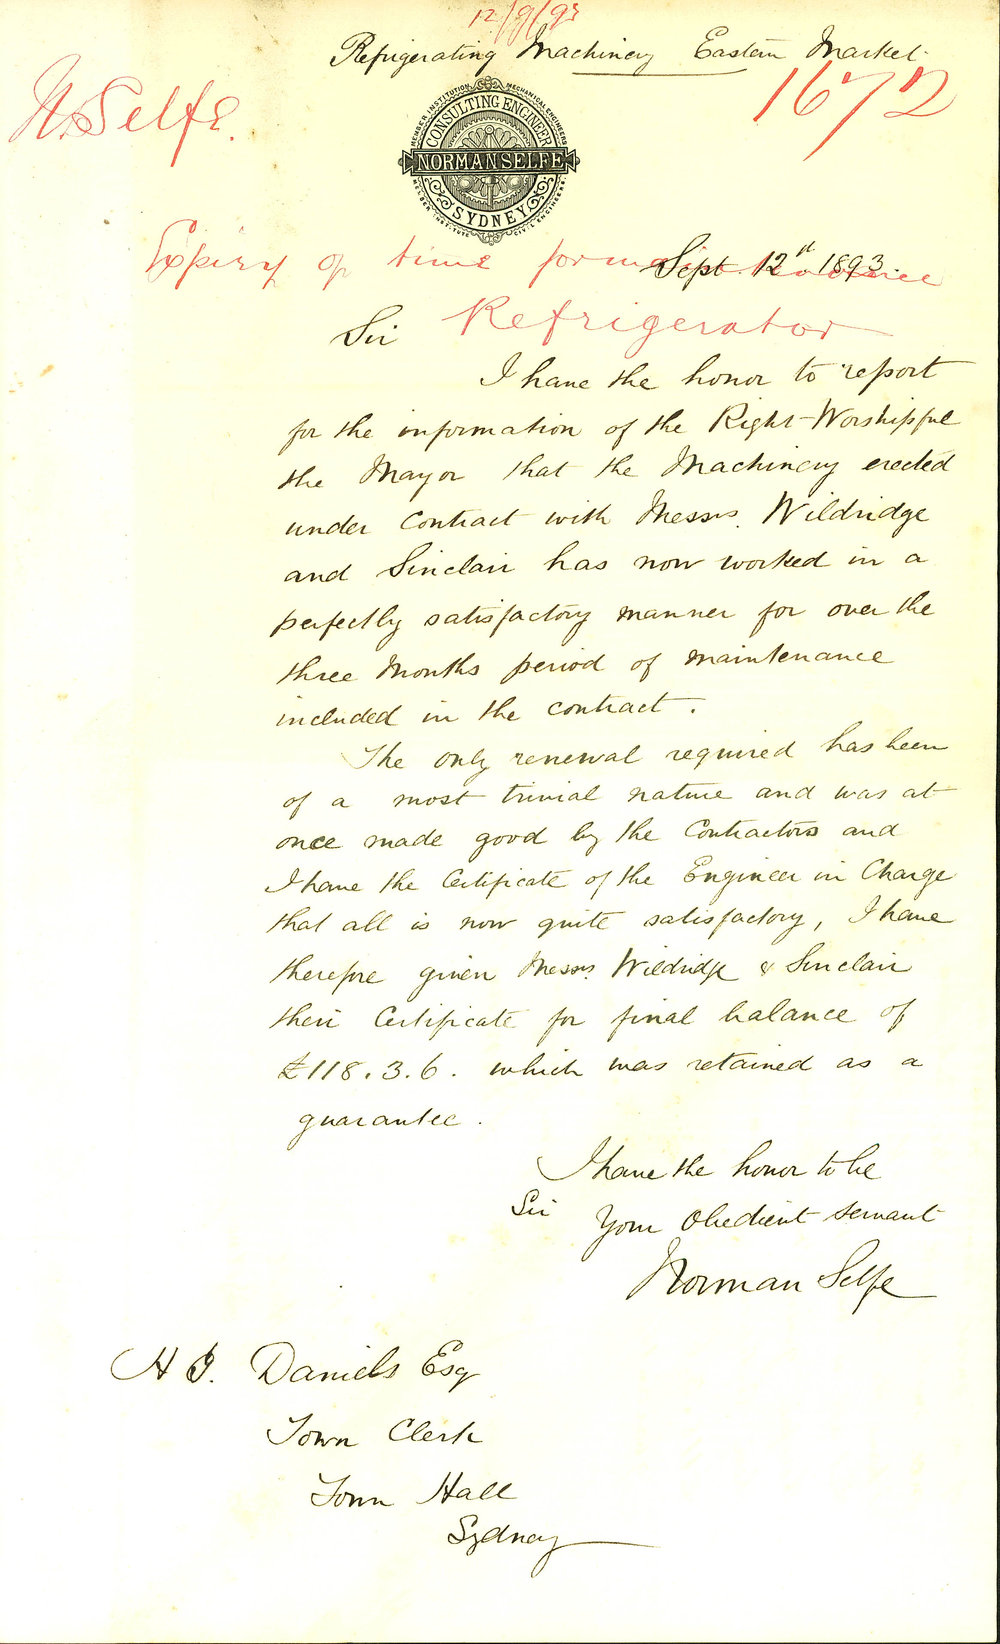 12/9/93
Refrigerating Machinery Eastern Market.
1672
N. Selfe.
MEMBER INSTITUTION MECHANICAL ENGINEERS
CONSULTING ENGINEER
NORMAN SELFE
SYDNEY
MEMBER INSTITUTE CIVIL ENGINEERS
Expiry of time for maintenance
Sept 12th 1893.
Refrigerator
Sir
I have the honor to report
for the information of the Right Worshipful
the Mayor that the Machinery erected
under Contract with Messrs. Wildridge
and Sinclair has now worked in a
perfectly satisfactory manner for over the
three Months period of maintenance
included in the contract.
The only renewal required has been
of a most trivial nature and was at
once made good by the Contractors and
I have the Certificate of the Engineer in Charge
that all is now quite satisfactory, I have
therefore given Messrs. Wildridge & Sinclair
their Certificate for final balance of
£118.3.6. which was retained as a
guarantee.
I have the honor to be
Sir Your Obedient Servant
Norman Selfe
H J. Daniels Esq
Town Clerk
Town Hall
Sydney